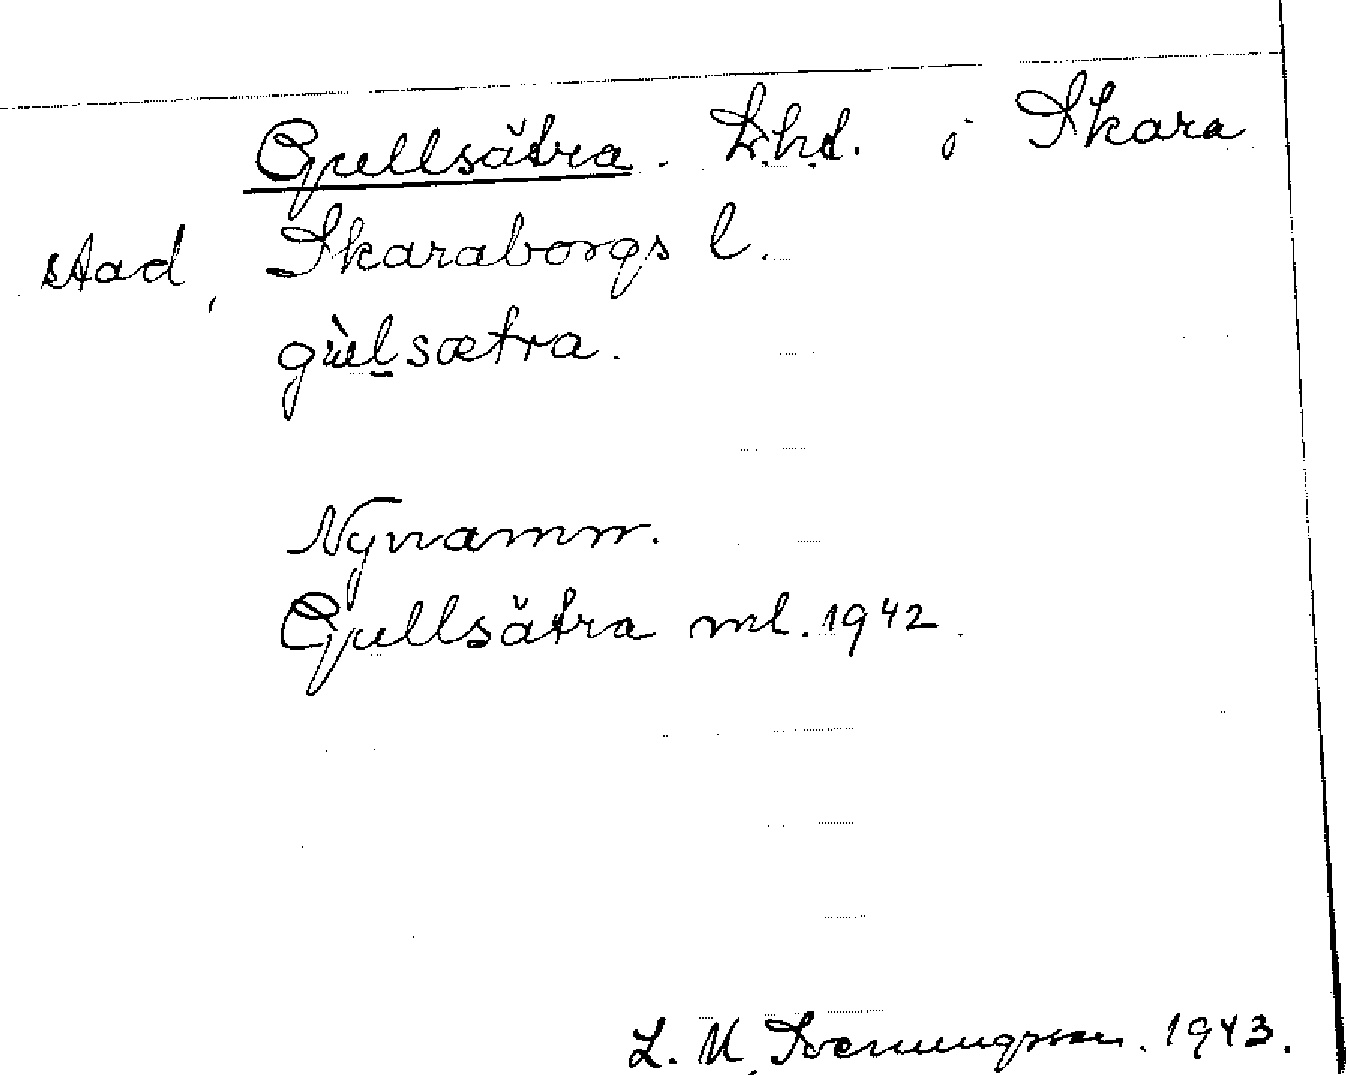 Gullsätra. Lht. i Skara
stad, Skaraborgs l.
gùl̠sætra.
Nynamn.
Gullsätra ml. 1942
L. M. Svenungsson. 1943.